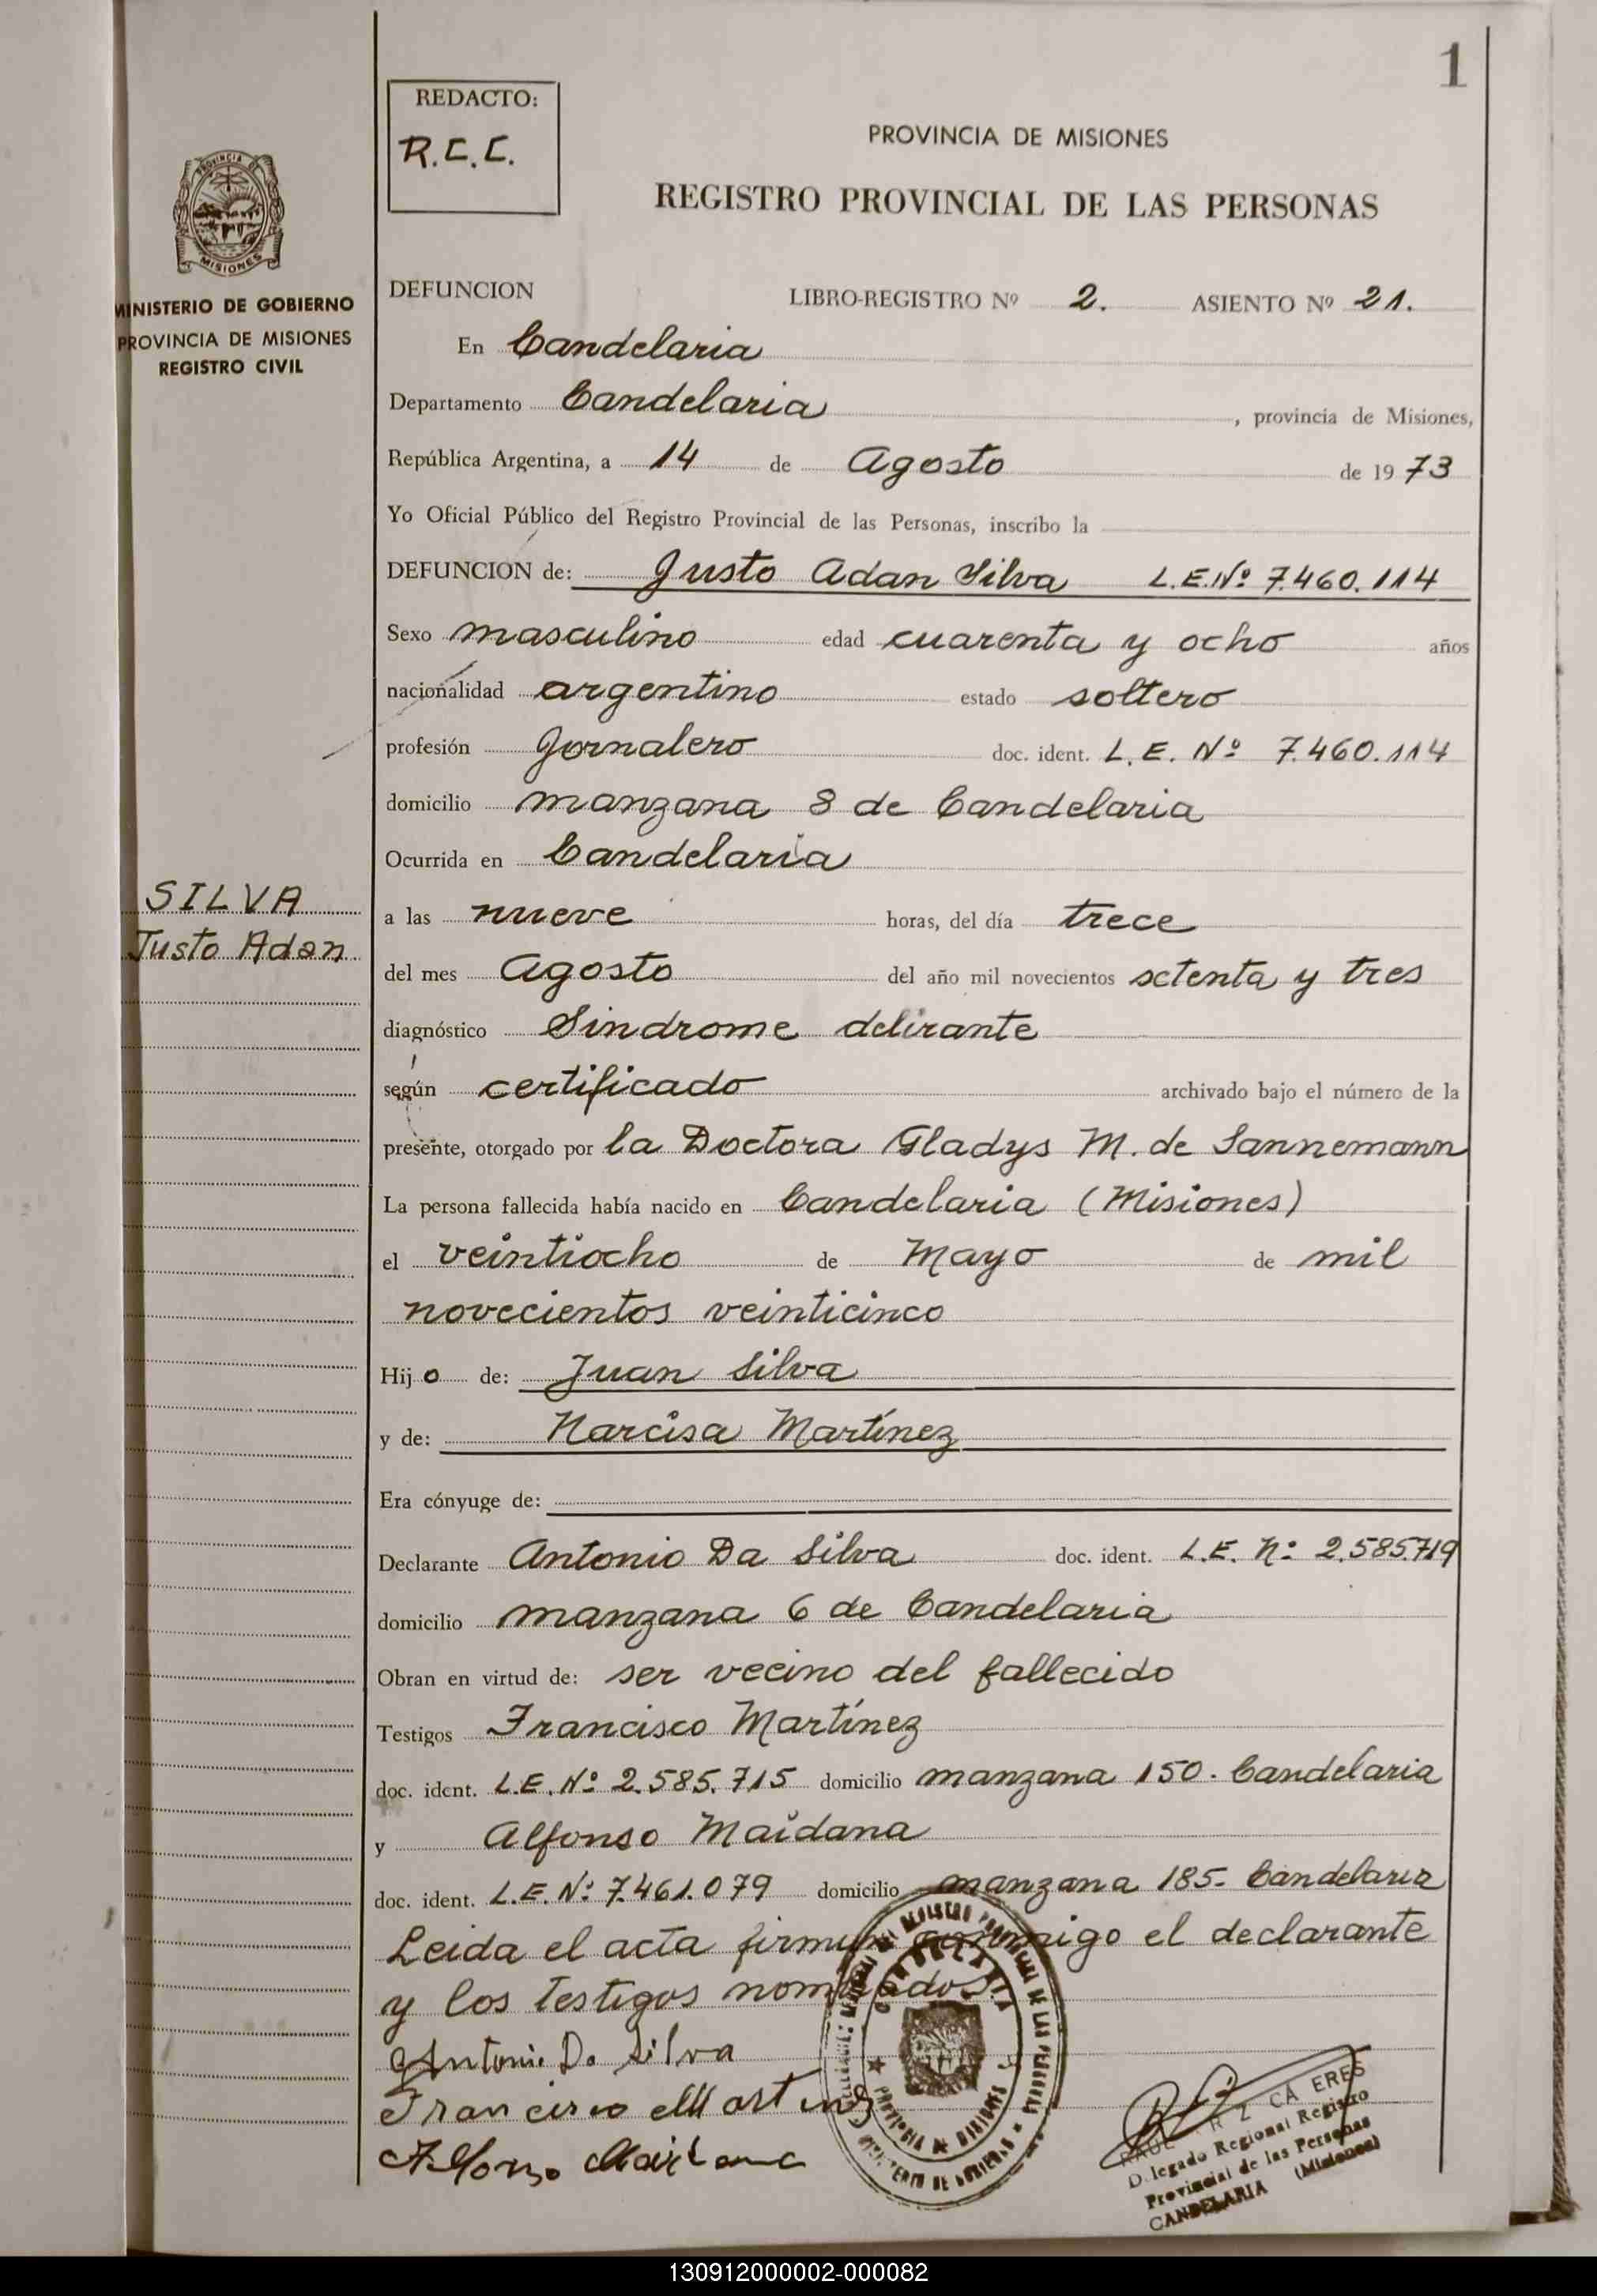 1
REDACTO:
R.C.C.
PROVINCIA DE MISIONES
REGISTRO PROVINCIAL DE LAS PERSONAS
PROVINCIA DE
MISIONES
MINISTERIO DE GOBIERNO
PROVINCIA DE MISIONES
REGISTRO CIVIL
DEFUNCION LIBRO-REGISTRO Nº 2. ASIENTO Nº 21.
En Candelaria
Departamento Candelaria, provincia de Misiones,
República Argentina, a 14 de Agosto de 1973
Yo Oficial Público del Registro Provincial de las Personas, inscribo la
DEFUNCION de: Justo Adan Silva L.E.Nº 7.460.114
Sexo masculino edad cuarenta y ocho años
nacionalidad argentino estado soltero
profesión Jornalero doc. ident. L.E. Nº 7.460.114
domicilio manzana 8 de Candelaria
Ocurrida en Candelaria
SILVA
Justo Adan
a las nueve horas, del día trece
del mes Agosto del año mil novecientos setenta y tres
diagnóstico Sindrome delirante
según certificado archivado bajo el número de la
presente, otorgado por la Doctora Gladys M. de Sannemann
La persona fallecida había nacido en Candelaria (Misiones)
el veintiocho de Mayo de mil
novecientos veinticinco
Hijo de: Juan Silva
y de: Narcisa Martínez
Era cónyuge de:
Declarante Antonio Da Silva doc. ident. L.E. N: 2.585.719
domicilio manzana 6 de Candelaria
Obran en virtud de: ser vecino del fallecido
Testigos Francisco Martínez
doc. ident. L.E. Nº 2.585.715 domicilio manzana 150. Candelaria
y Alfonso Maidana
doc. ident. L.E. N: 7.461.079 domicilio manzana 185- Candelaria
Leida el acta firman conmigo el declarante
y los testigos nombrados.
Antonio Da Silva
Francisco Martinez
Alfonso Maidana
CANDELARIA
PROVINCIA DE MISIONES
CA ERES
Delegado Regional Registro
Provincial de las Personas
CANDELARIA (Misiones)
130912000002-000082